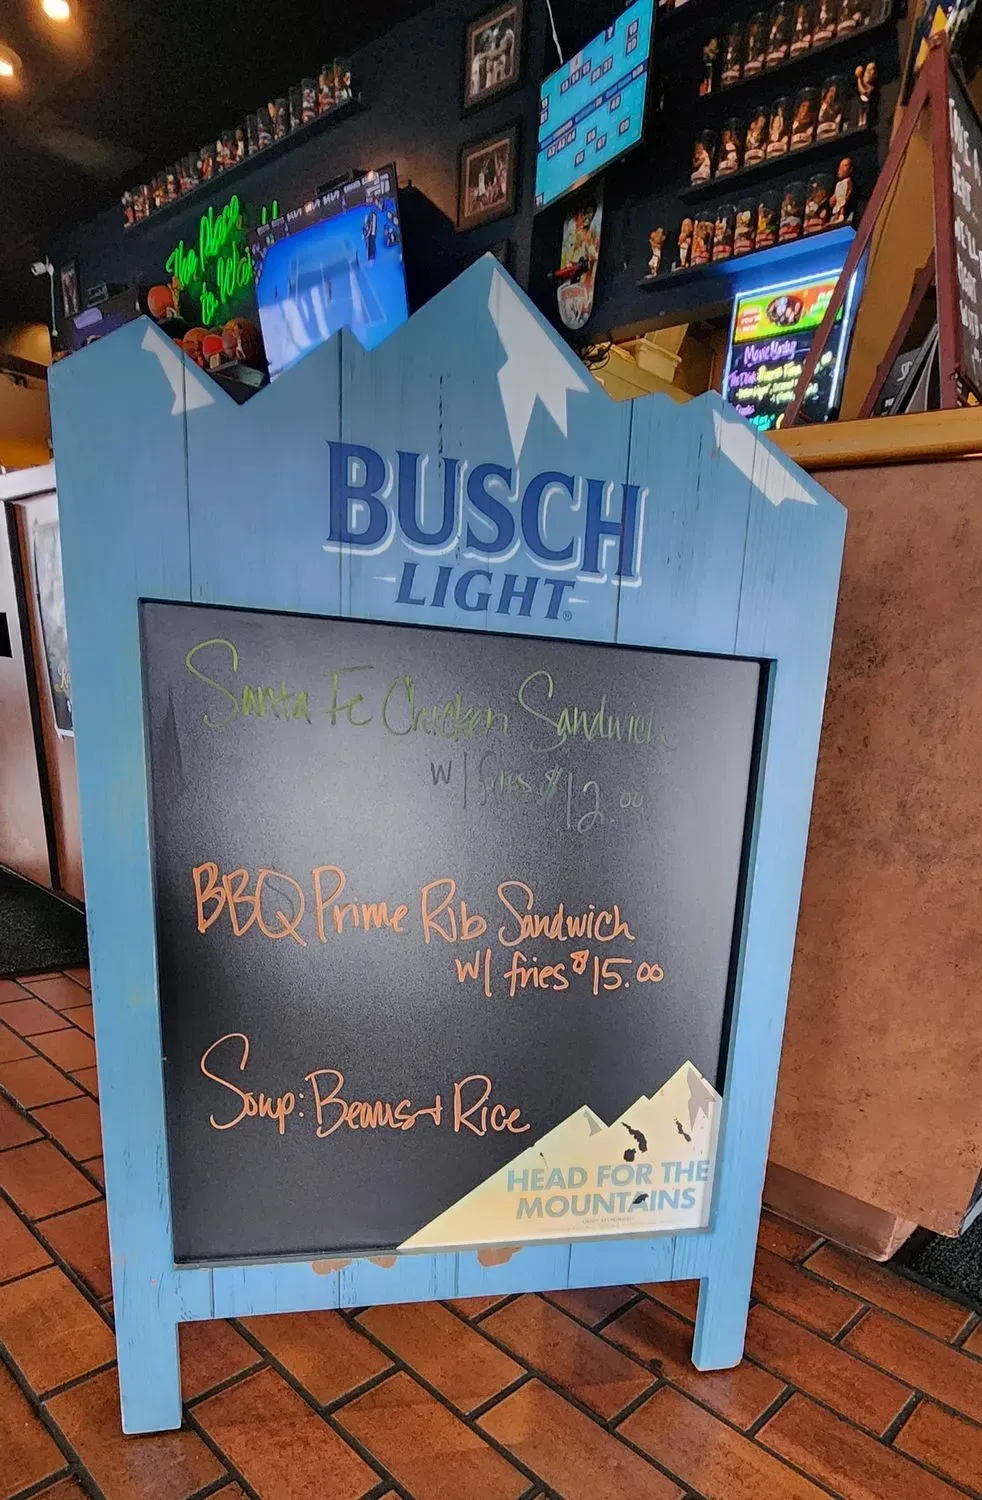 The Place
to Wa
BUSCH
LIGHT®
Santa Fe Chicken Sandwich
w/ fries $12.00
BBQ Prime Rib Sandwich
w/ fries $15.00
Soup: Beans + Rice
HEAD FOR THE
MOUNTAINS